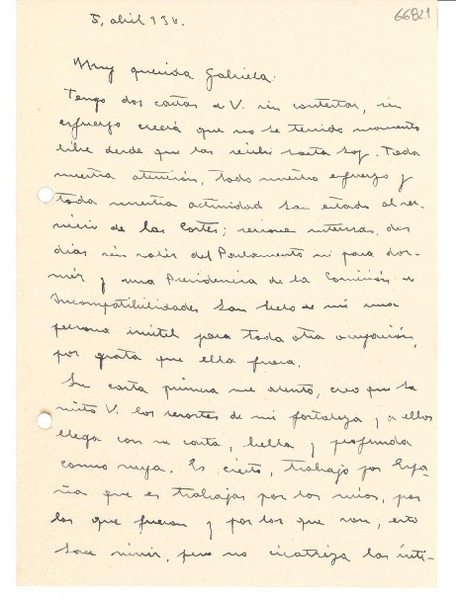 5, abril 936.
66821
Muy querida Gabriela:
Tengo dos cartas de V. sin contestar, sin
esfuerzo creerá que no he tenido momento
libre desde que las recibí hasta hoy. Toda
nuestra atención, todo nuestro esfuerzo y
toda nuestra actividad han estado al ser-
vicio de las Cortes; sesiones intensas, dos
días sin salir del Parlamento ni para dor-
mir y una Presidencia de la Comisión de
Incompatibilidades han hecho de mi una
persona inútil para toda otra ocupación,
por grata que ella fuera.
Su carta primera me alentó, creo que he
V. los resortes de mi fortaleza, y a ellos
llega con su carta, bella y profunda
como suya. Es cierto, trabajo por Espa-
ña que es trabajar por los míos, por
los que fueron y por los que van, esto
hace vivir, pero no cicatriza las ínti-